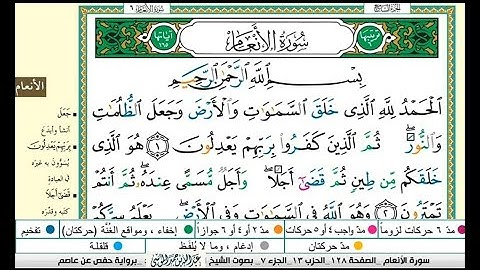 سورة الأنعام ٦
الجزء السابع
ترتيبها ٦
سُورَةُ الأَنْعَامِ
آياتها ١٦٥
بِسْمِ اللَّهِ الرَّحْمَٰنِ الرَّحِيمِ
الْحَمْدُ لِلَّهِ الَّذِي خَلَقَ السَّمَاوَاتِ وَالْأَرْضَ وَجَعَلَ الظُّلُمَاتِ
وَالنُّورَ ۖ ثُمَّ الَّذِينَ كَفَرُوا بِرَبِّهِمْ يَعْدِلُونَ ١ هُوَ الَّذِي
خَلَقَكُم مِّن طِينٍ ثُمَّ قَضَىٰ أَجَلًا ۖ وَأَجَلٌ مُّسَمًّى عِندَهُ ۖ ثُمَّ أَنتُمْ
تَمْتَرُونَ ٢ وَهُوَ اللَّهُ فِي السَّمَاوَاتِ وَفِي الْأَرْضِ ۖ يَعْلَمُ سِرَّكُمْ
الأنعام
جَعَلَ
أنشأ وأبدع
بِرَبِّهِمْ يَعْدِلُونَ
يسوّون به غيره
في العبادة
قَضَىٰ أَجَلًا
كتبه وقدّره
مدّ ٦ حركات لزوماً
مدّ ٢ أو ٤ أو ٦ جوازاً
إخفاء، ومواقع الغُنَّة (حركتان)
تفخيم
مدّ واجب ٤ أو ٥ حركات
مدّ حركتان
إدغام، وما لا يُلفَظ
قلقلة
سورة الأنعام _ صفحة ١٢٨ _ الحزب ١٣ _ الجزء ٧ _ بصوت الشيخ
برواية حفص عن عاصم